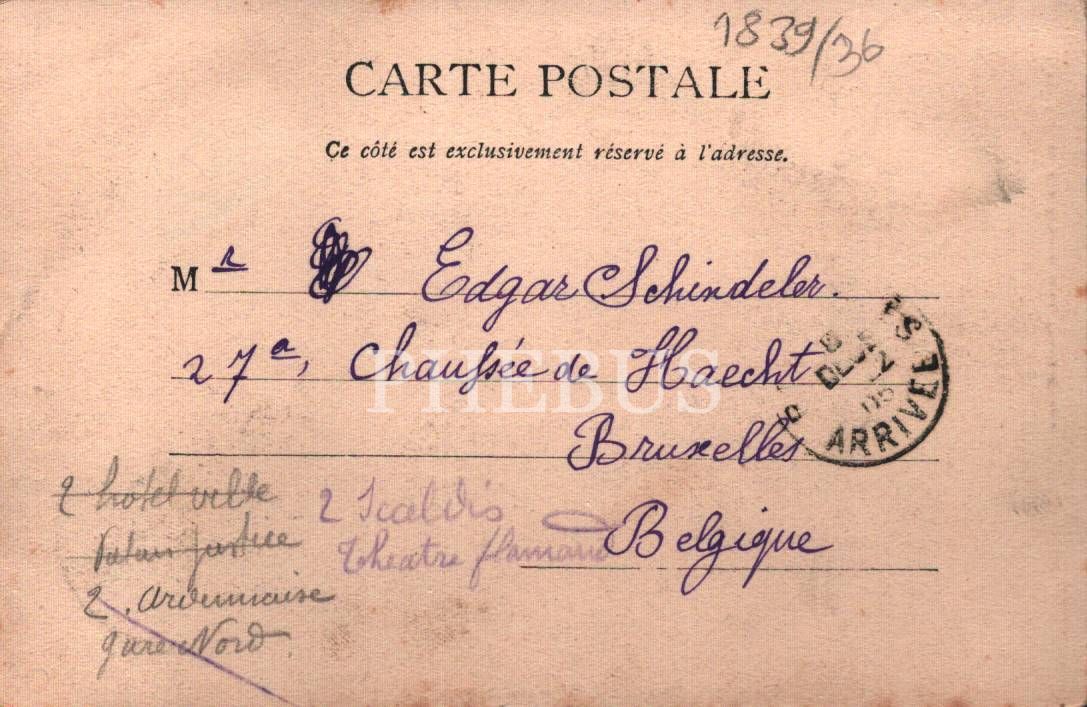 1839/36
CARTE POSTALE
Ce côté est exclusivement réservé à l'adresse.
M r Edgar Schindeler.
27a, Chaussée de Haecht
PHEBUS
Bruxelles
Belgique
ARRIVEE
2 hôtel ville
Palais justice
2. Ardennaise
gare Nord.
2 Scaldis
théatre flamand